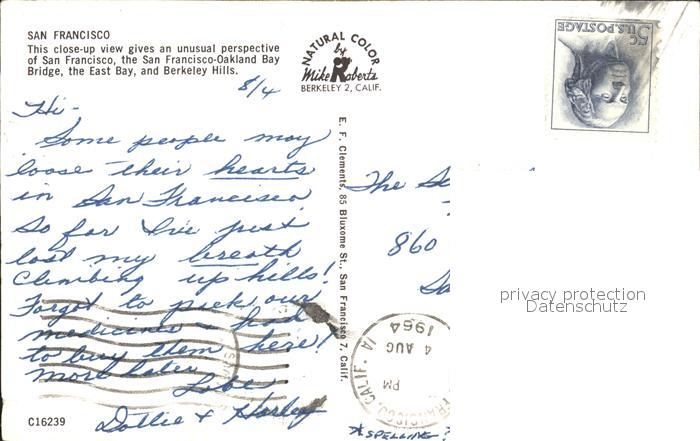 SAN FRANCISCO
This close-up view gives an unusual perspective
of San Francisco, the San Francisco-Oakland Bay
Bridge, the East Bay, and Berkeley Hills.
NATURAL COLOR
by
Mike Roberts
BERKELEY 2, CALIF.
5¢
U.S. POSTAGE
8/4
Hi-
Some people may
loose their hearts
in San Francisco
So far I've just
lost my breath
Climbing up hills!
Forgot to pick our
medicines - had
to buy them here!
more later
Love
Dollie + Harley
C16239
E. F. Clements, 85 Bluxome St., San Francisco 7, Calif.
The
860
privacy protection
Datenschutz
FRANCISCO, CALIF.
PM
4 AUG
1964
*SPELLING?